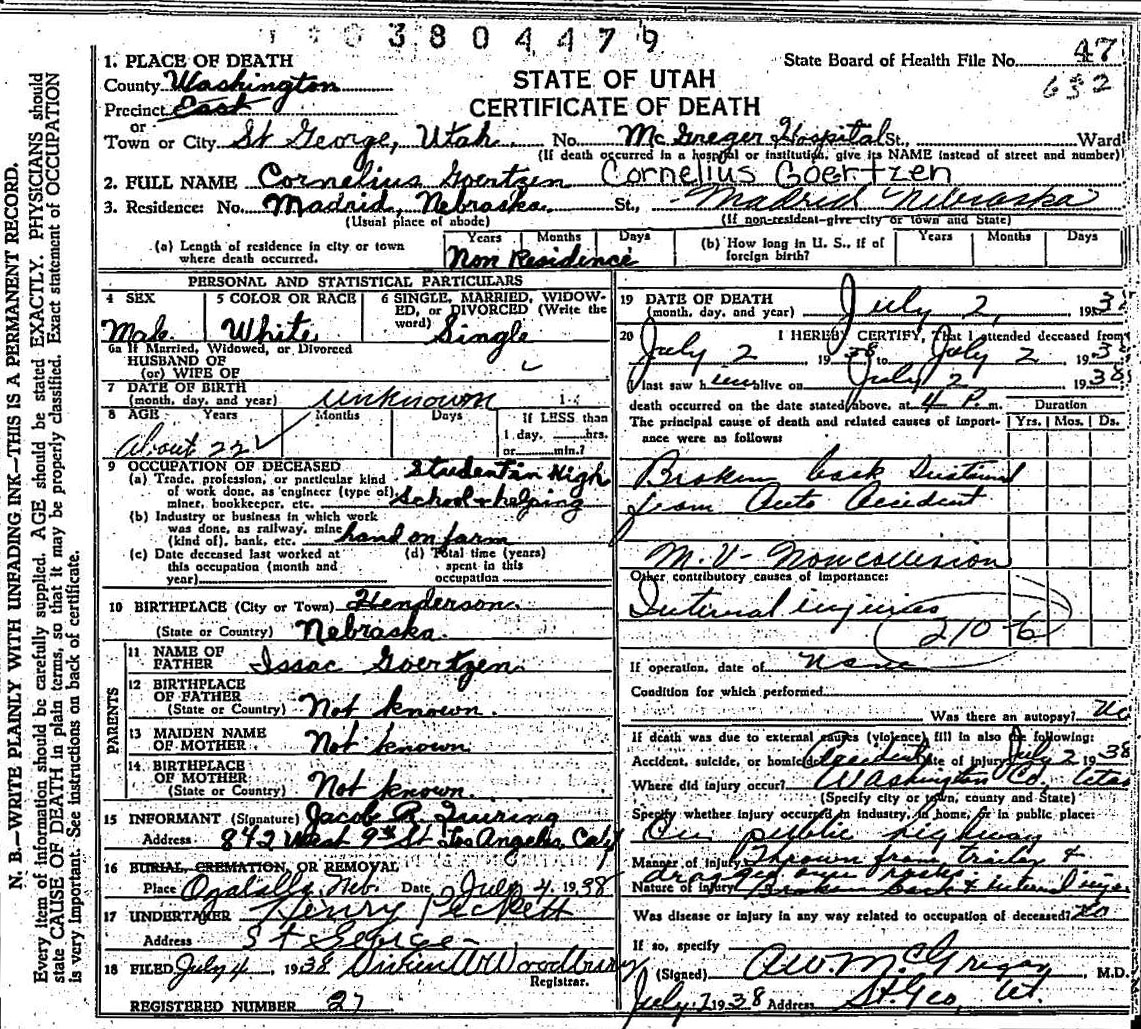 N. B.—WRITE PLAINLY WITH UNFADING INK—THIS IS A PERMANENT RECORD.
Every item of information should be carefully supplied. AGE should be stated EXACTLY. PHYSICIANS should
state CAUSE OF DEATH in plain terms, so that it may be properly classified. Exact statement of OCCUPATION
is very important. See instructions on back of certificate.
3 8 0 4 4 7 9
1. PLACE OF DEATH
State Board of Health File No. 47
County Washington
STATE OF UTAH
632
Precinct East
CERTIFICATE OF DEATH
or
Town or City St George, Utah. No. McGreger Hospital St., Ward
(If death occurred in a hospital or institution, give its NAME instead of street and number)
2. FULL NAME Cornelius Goertzen Cornelius Goertzen
3. Residence: No. Madrid, Nebraska. St., Madrid Nebraska
(Usual place of abode) (If non-resident-give city or town and State)
(a) Length of residence in city or town where death occurred. Years Months Days Non Residence
(b) How long in U. S., if of foreign birth? Years Months Days
PERSONAL AND STATISTICAL PARTICULARS
4 SEX Male
5 COLOR OR RACE White
6 SINGLE, MARRIED, WIDOWED, or DIVORCED (Write the word) Single
6a If Married, Widowed, or Divorced
HUSBAND OF
(or) WIFE OF
7 DATE OF BIRTH
(month, day, and year) unknown
8 AGE Years Months Days If LESS than
1 day, hrs.
or min.?
About 22
9 OCCUPATION OF DECEASED
(a) Trade, profession, or particular kind of work done, as engineer (type of) miner, bookkeeper, etc. Student in High School + helping
(b) Industry or business in which work was done, as railway, mine (kind of), bank, etc. hand on farm
(c) Date deceased last worked at this occupation (month and year)
(d) Total time (years) spent in this occupation
10 BIRTHPLACE (City or Town) Henderson.
(State or Country) Nebraska.
PARENTS
11 NAME OF FATHER Issac Goertzen.
12 BIRTHPLACE OF FATHER
(State or Country) Not known.
13 MAIDEN NAME OF MOTHER Not known
14 BIRTHPLACE OF MOTHER
(State or Country) Not known.
15 INFORMANT (Signature) Jacob R. Quiring
Address 842 West 9th St Los Angeles, Caly
16 BURIAL, CREMATION, OR REMOVAL
Place Ogalally, Neb. Date July 4, 1938
17 UNDERTAKER Henry Peckett
Address St George
18 FILED July 4, 1938 Woodbury
Registrar.
REGISTERED NUMBER 27
19 DATE OF DEATH
(month, day, and year) July 2, 1938
20 I HEREBY CERTIFY, That I attended deceased from
July 2 1938 to July 2 1938
I last saw him alive on July 2 1938
death occurred on the date stated above, at 4 P. m.
Duration
The principal cause of death and related causes of importance were as follows: Yrs. Mos. Ds.
Broken back Sustained
from Auto Accident
M. V - Noncollision
Other contributory causes of importance:
Internal injuries
210-6
If operation, date of None
Condition for which performed
Was there an autopsy? No
If death was due to external causes (violence) fill in also the following:
Accident, suicide, or homicide Accident Date of injury July 2 1938
Where did injury occur? Washington Co, Utah
(Specify city or town, county and State)
Specify whether injury occurred in industry, in home, or in public place:
On public highway
Manner of injury Thrown from trailer &
dragged over rocks
Nature of injury Broken back & internal injur
Was disease or injury in any way related to occupation of deceased? No
If so, specify
(Signed) A.W. McGregor M.D.
July 2 1938 Address St. Geo, Ut.